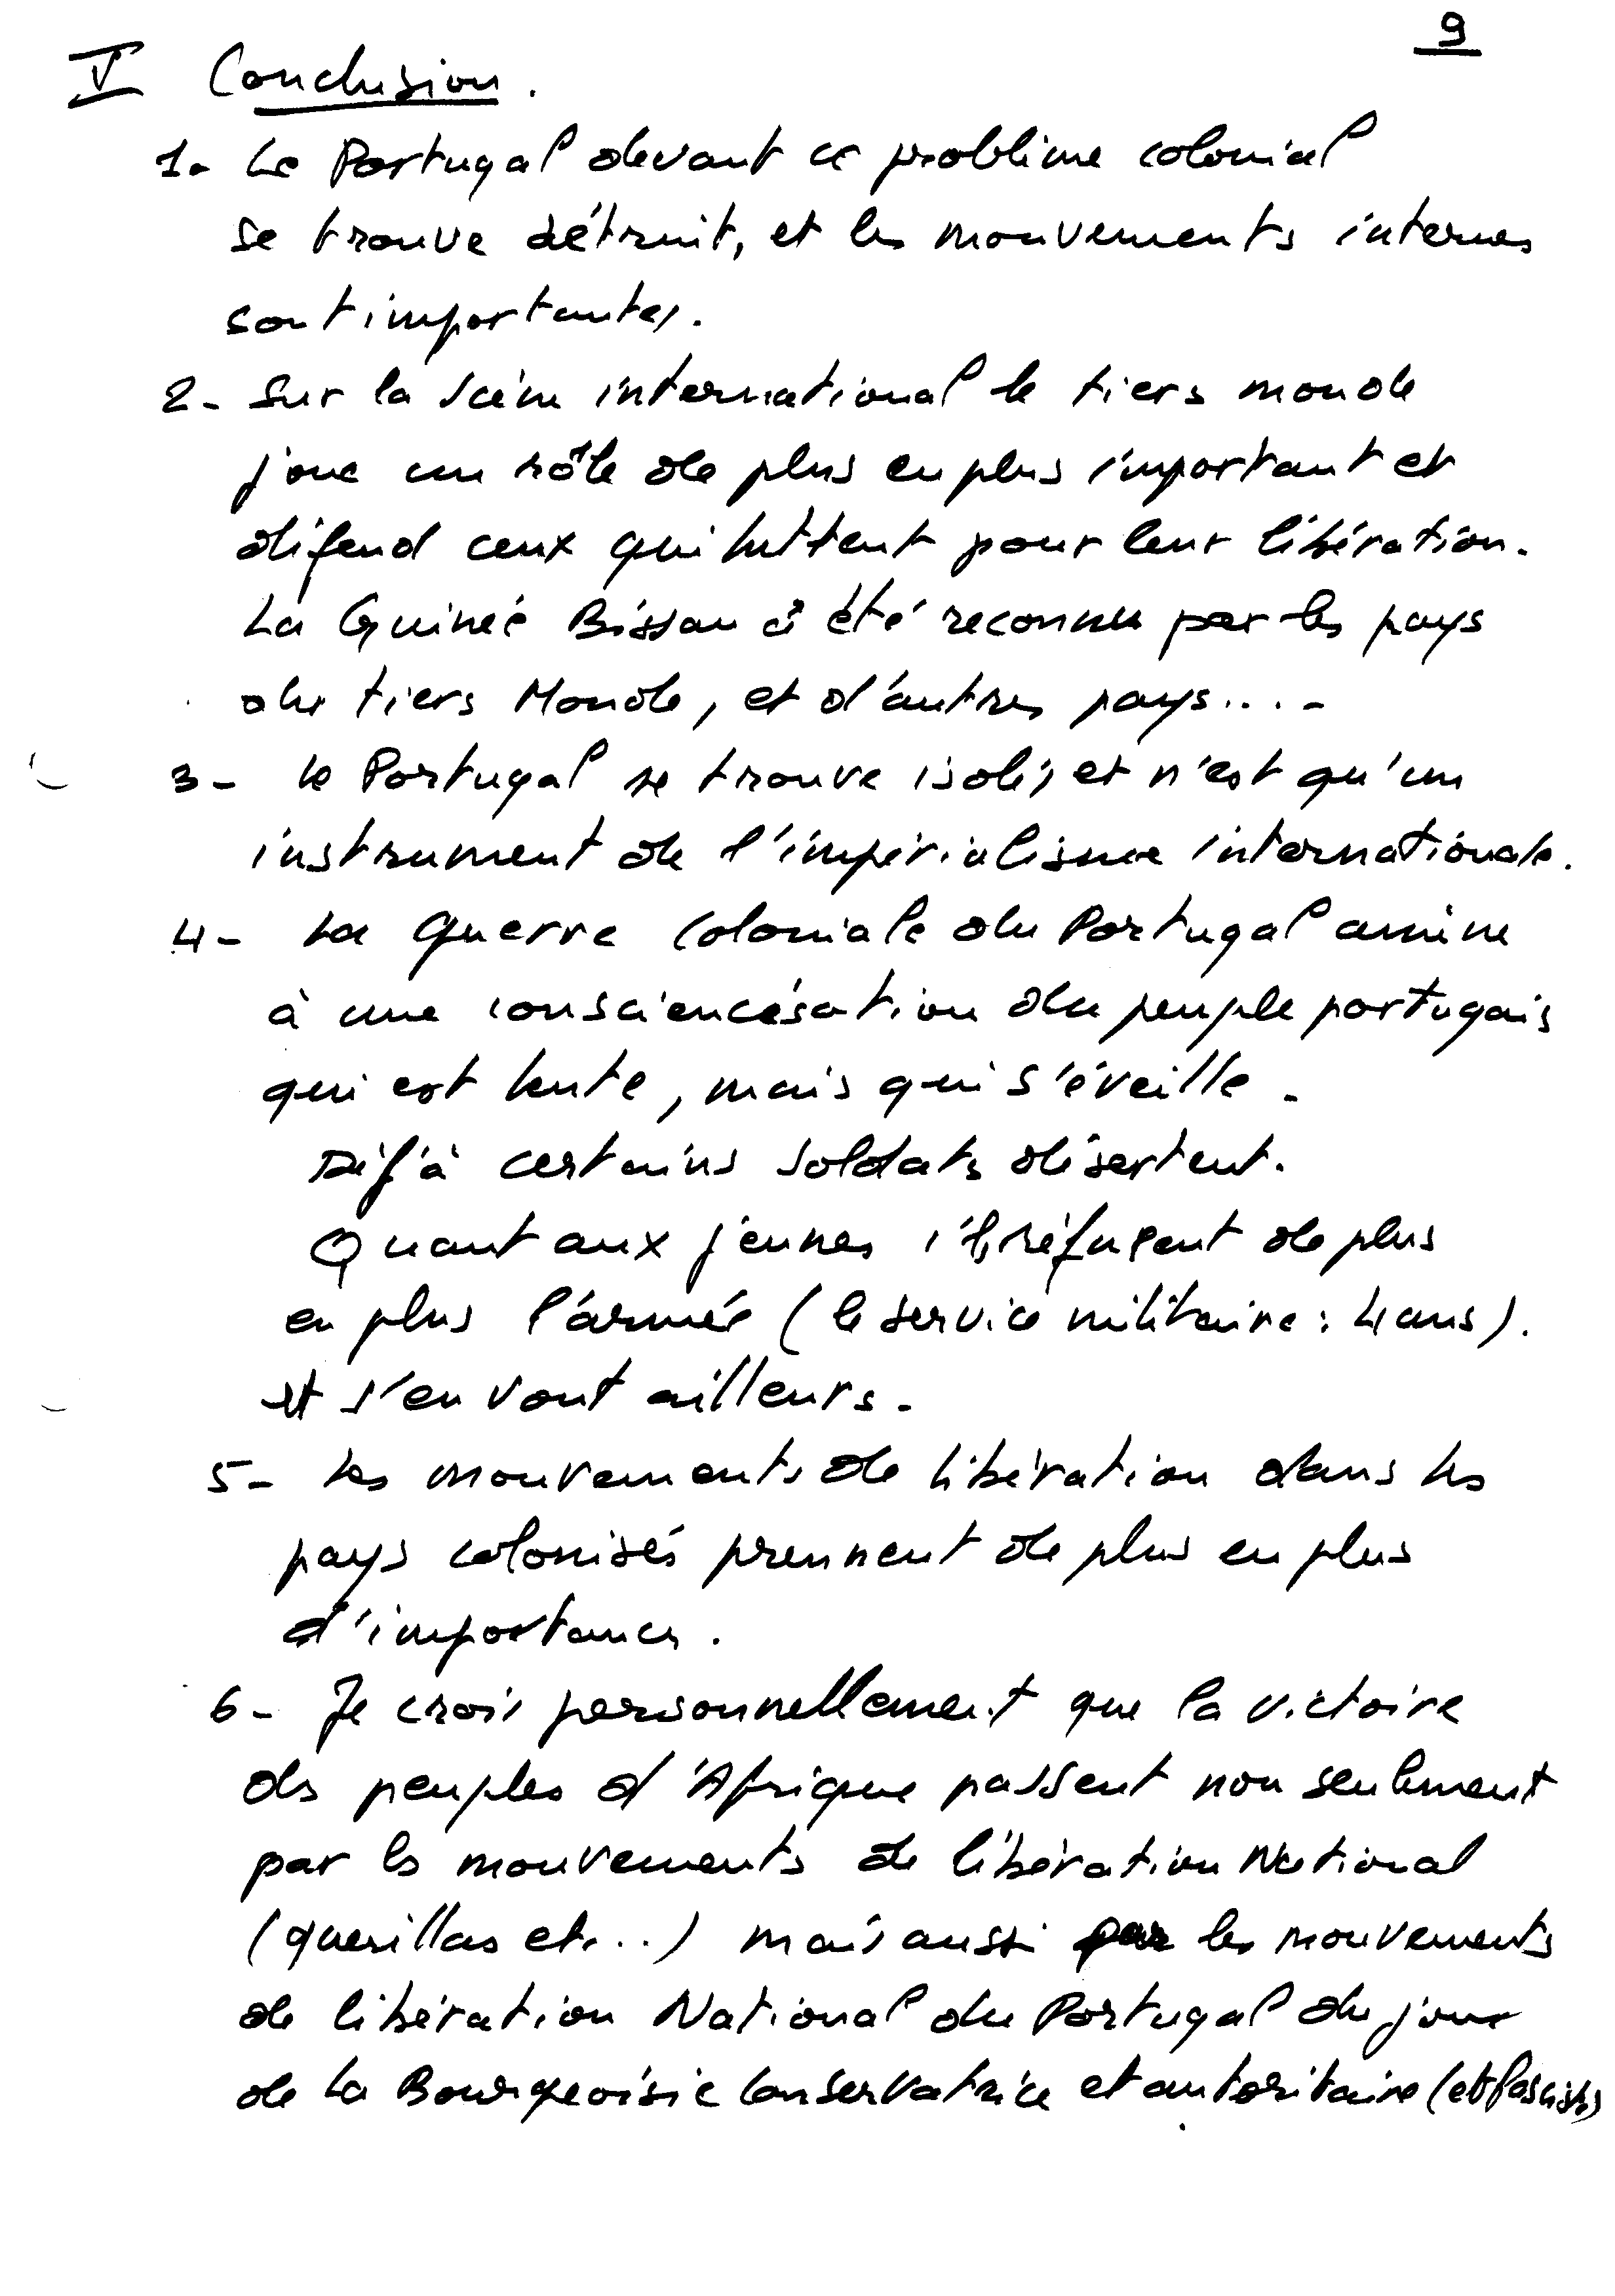 9
V Conclusion.
1- Le Portugal devant ce problème colonial
se trouve détruit, et les mouvements internes
sont importantes.
2- Sur la scène international le tiers monde
joue un rôle de plus en plus important et
défend ceux qui luttent pour leur libération.
La Guinée Bissau à été reconnu par les pays
du tiers Monde, et d'autres pays....
3- le Portugal se trouve isolé, et n'est qu'un
instrument de l'impérialisme internationale.
4- La guerre coloniale du Portugal amène
à une consciencésation du peuple portugais
qui est lente, mais qui s'éveille.
Déjà certains soldats désertent.
Quant aux jeunes ils réfusent de plus
en plus l'armée (le service militaire: 4 ans).
et s'en vont ailleurs.
5- Les mouvements de libération dans les
pays colonisés prennent de plus en plus
d'importances.
6- Je crois personnellement que la victoire
des peuples d'Afrique passent non seulement
par les mouvements de libération National
(guerillas etc...) mais aussi par les mouvements
de libération National du Portugal du jour
de la Bourgeoisie Conservatrice et autoritaire (et fasciste)